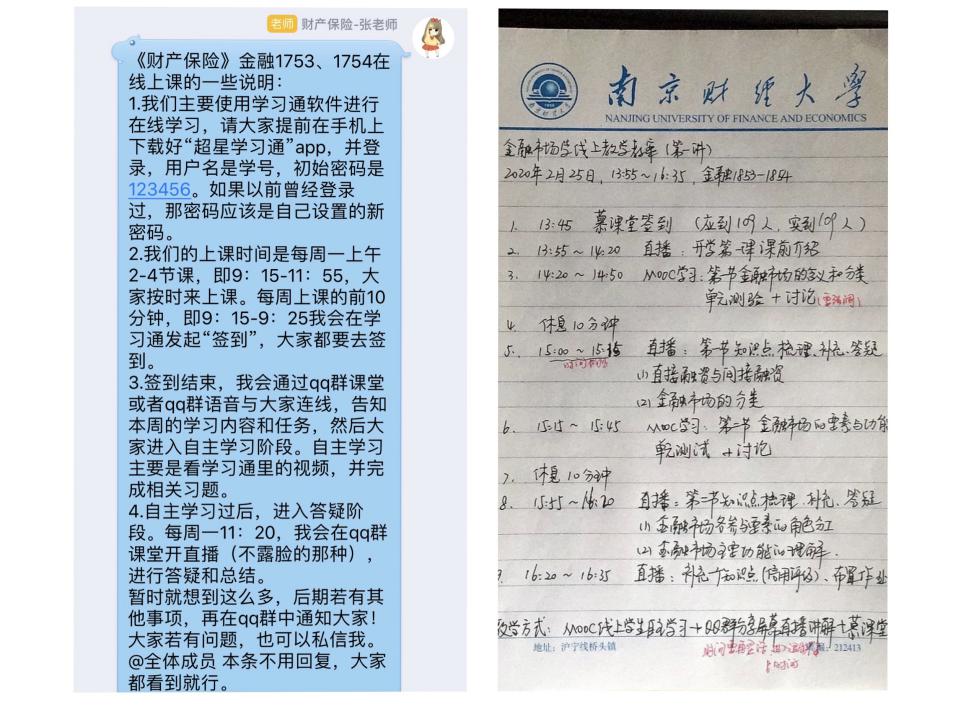 老师 财产保险-张老师
《财产保险》金融1753、1754在
线上课的一些说明：
1.我们主要使用学习通软件进行
在线学习，请大家提前在手机上
下载好“超星学习通”app，并登
录，用户名是学号，初始密码是
123456。如果以前曾经登录
过，那密码应该是自己设置的新
密码。
2.我们的上课时间是每周一上午
2-4节课，即9：15-11：55，大
家按时来上课。每周上课的前10
分钟，即9：15-9：25我会在学
习通发起“签到”，大家都要去签
到。
3.签到结束，我会通过qq群课堂
或者qq群语音与大家连线，告知
本周的学习内容和任务，然后大
家进入自主学习阶段。自主学习
主要是看学习通里的视频，并完
成相关习题。
4.自主学习过后，进入答疑阶
段。每周一11：20，我会在qq群
课堂开直播（不露脸的那种），
进行答疑和总结。
暂时就想到这么多，后期若有其
他事项，再在qq群中通知大家！
大家若有问题，也可以私信我。
@全体成员 本条不用回复，大家
都看到就行。
南京财经大学
NANJING UNIVERSITY OF FINANCE AND ECONOMICS
金融市场学线上教学教案（第一讲）
2020年2月25日，13:55~16:35，金融1853-1854
1. 13:45 慕课堂签到（应到109人，实到109人）
2. 13:55~14:20 直播：开学第一课课前介绍
3. 14:20~14:50 MOOC学习：第一节金融市场的含义和分类
单元测验+讨论
4. 休息10分钟
5. 15:00~15:15 直播：第一节知识点梳理、补充、答疑
(1)直接融资与间接融资
(2)金融市场的分类
6. 15:15~15:45 MOOC学习：第二节 金融市场的要素与功能
单元测试+讨论
7. 休息10分钟
8. 15:55~16:20 直播：第二节知识点梳理、补充、答疑
(1)金融市场各参与要素的角色分工
(2)金融市场主要功能的理解.
9. 16:20~16:35 直播：补充知识点(信用评级)、布置作业
教学方式：MOOC线上学生自主学习+QQ群分享屏幕直播讲解+慕课堂
地址：沪宁线桥头镇 212413